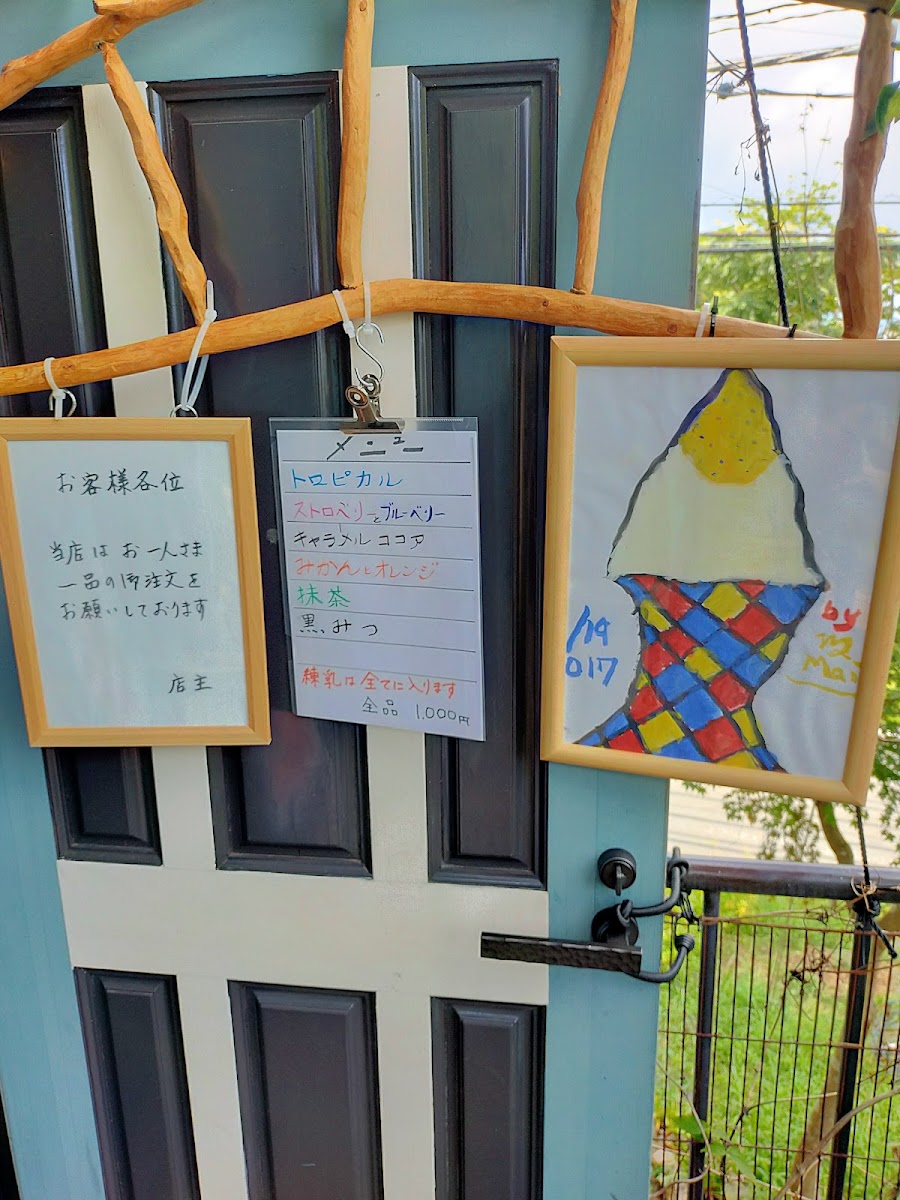 お客様各位
当店は お一人さま
一品の御注文を
お願いしております
店主
メニュー
トロピカル
ストロベリーとブルーベリー
キャラメルココア
みかんとオレンジ
抹茶
黒みつ
練乳は全てに入ります
全品 1,000円
/19
017
by